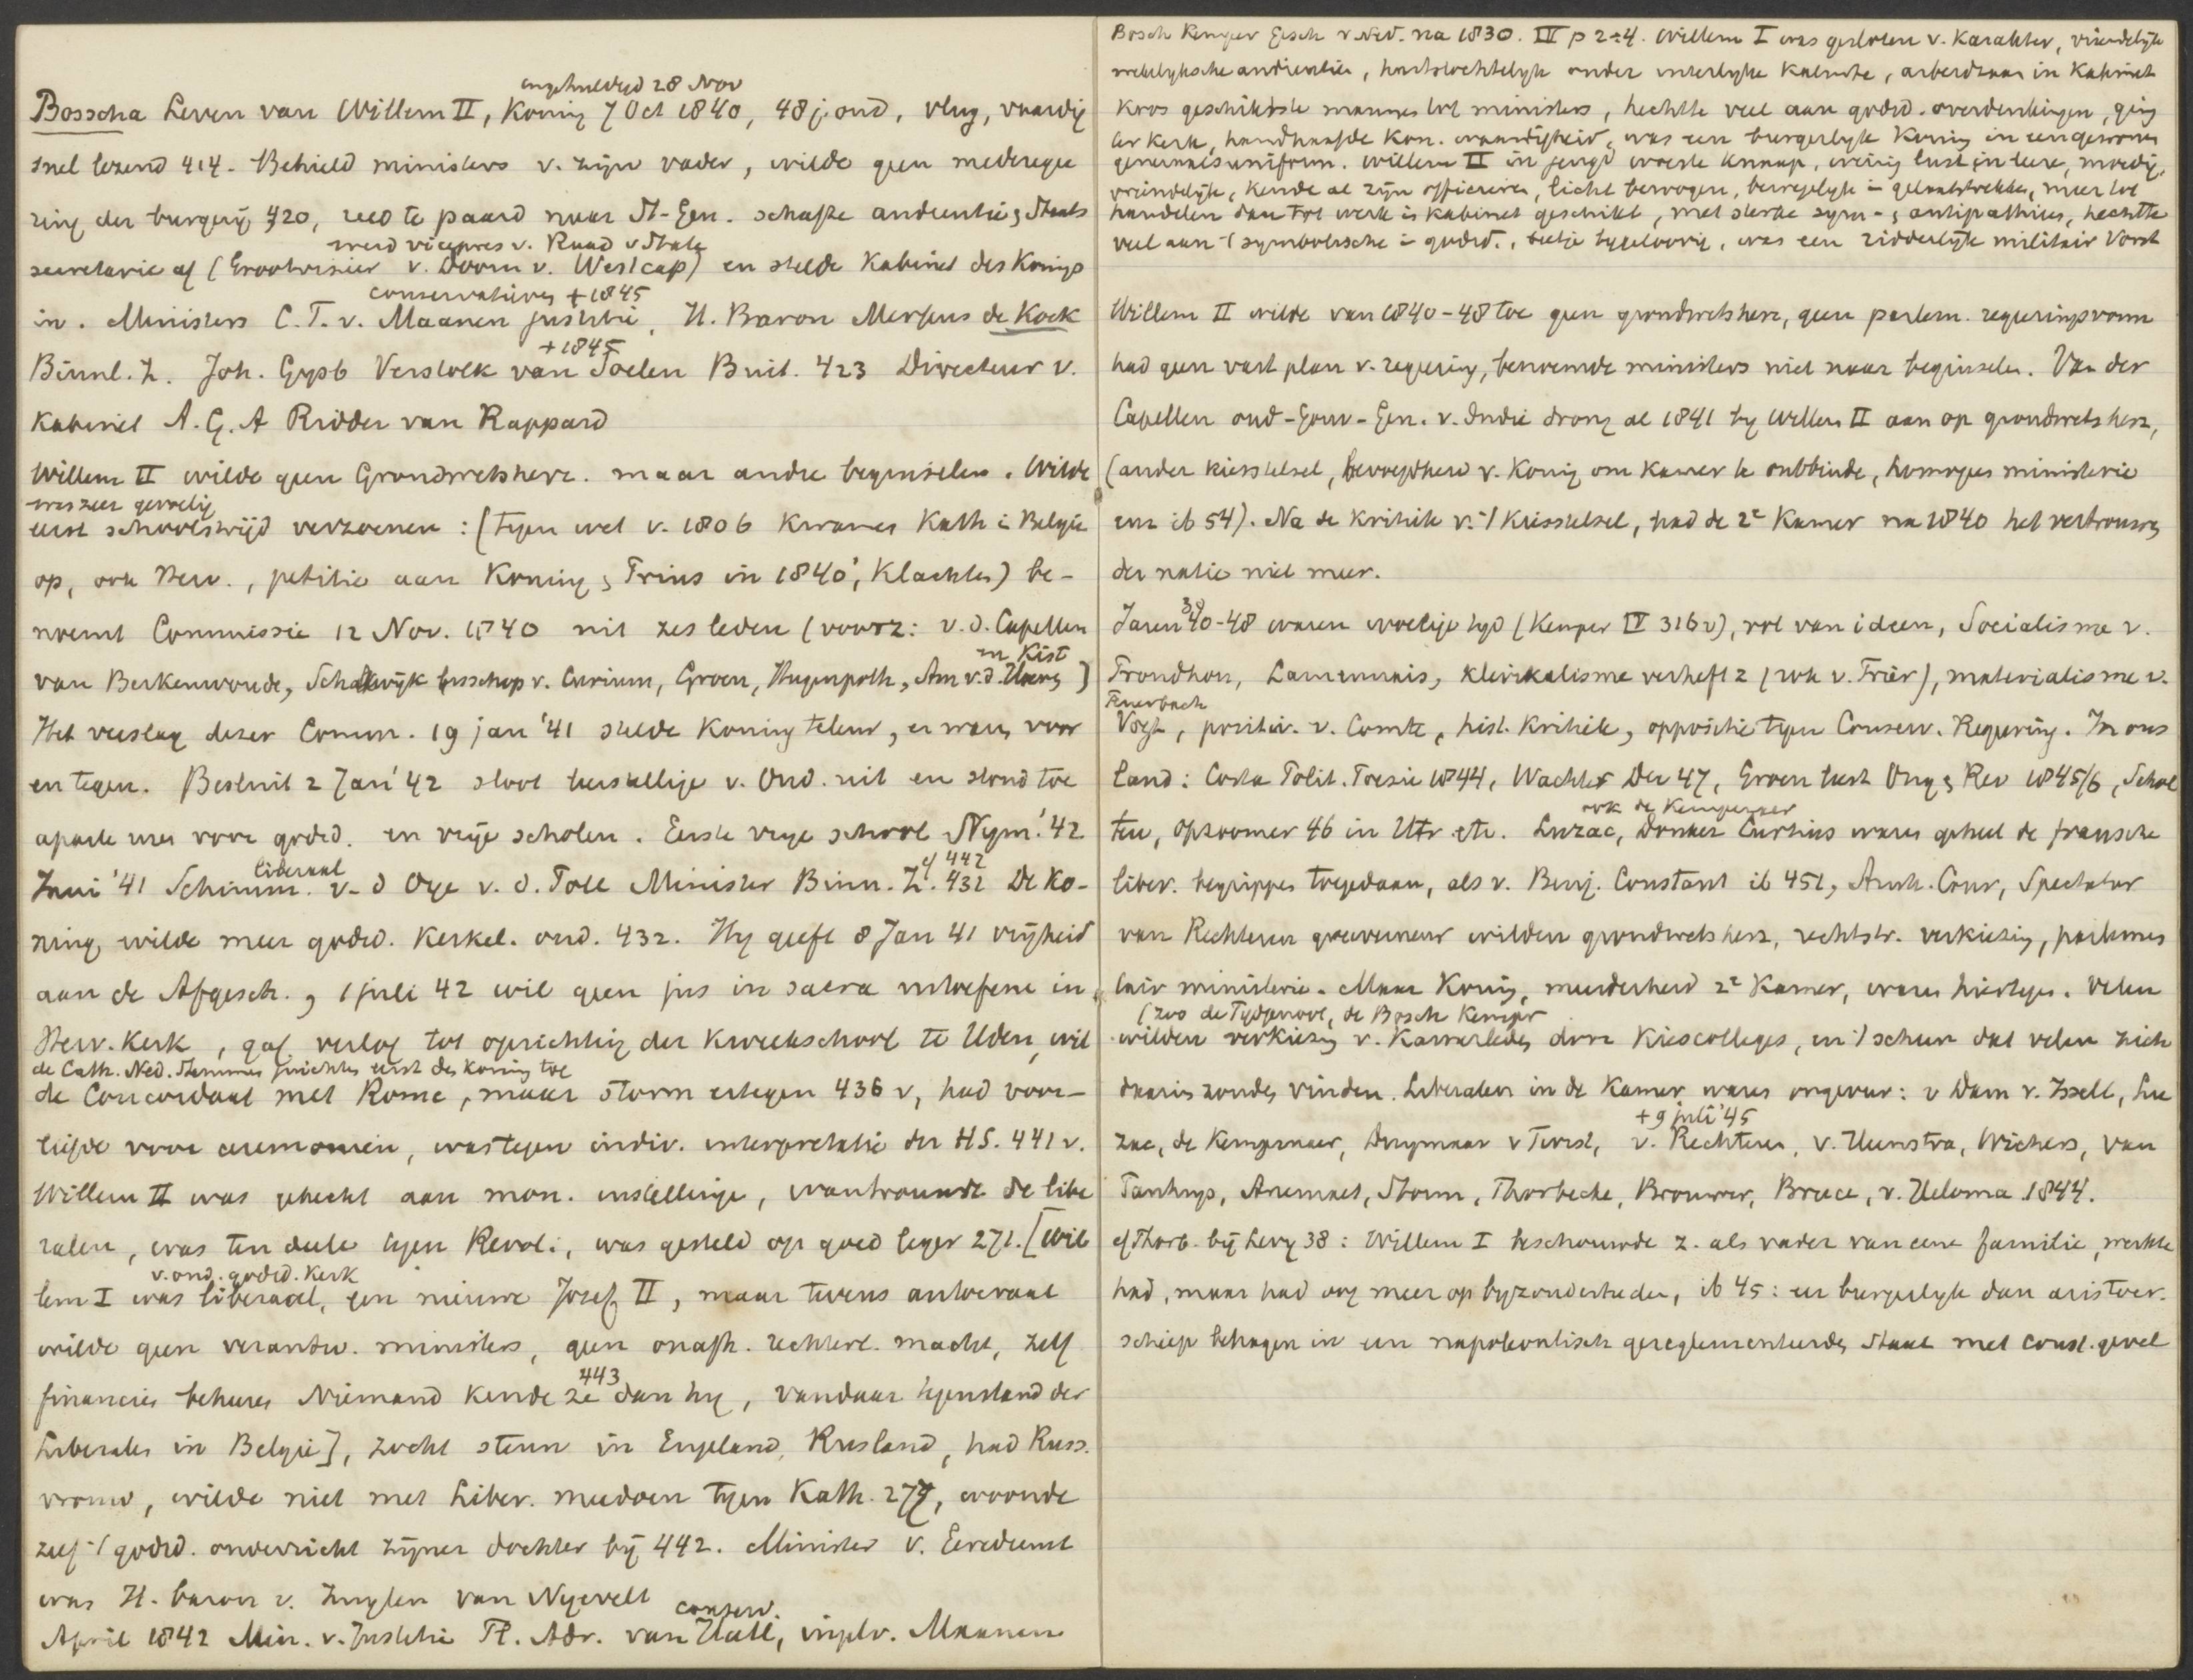 ingehuldigd 28 Nov
Bosscha Leven van Willem II, Koning 7 Oct 1840, 48 j. oud, vlug, vaardig
snel lezend 414. Behield ministers v. zijn vader, wilde geen mederegee
ring der burgerij 420, reed te paard naar St-Gen. schafte audientie, Staats
werd vicepres v. Raad v State
secretarie af (Grootvisier v. Doorn v. Westcap) en stelde Kabinet des Konings
conservatieven +1845
in. Ministers C. T. v. Maanen justitie, H. Baron Merkus de Kock
+1845
Binnl. Z. Joh. Gysb Verstolk van Soelen Buit. 423 Directeur v.
Kabinet A. G. A Ridder van Rappard
Willem II wilde geen Grondwetsherz. maar andre beginselen. Wilde
was zeer gevoelig
eerst schoolstrijd verzoenen: (tegen wet v. 1806 kwamen Kath in Belgie
op, ook Herv., petitie aan Koning, Prins in 1840, klachten) be-
noemt Commissie 12 Nov. 1840 uit zes leden (voorz: v. d. Capellen
en Kist
van Berkenwoude, Schaikwijk bisschop v. Curium, Groen, Hugenpoth, Am v.d. Hoeven)
Het verslag dezer Comm. 19 jan '41 stelde Koning teleur, er was voor
en tegen. Besluit 2 Jan '42 sloot leerstellige v. Ond. uit en stond toe
aparte uren voor godsd. en vrije scholen. Eerste vrije school Nym. '42
liberaal cf 442
Juni '41 Schimm. v. d Oye v. d. Poll Minister Binn. Z. 432 De Ko-
ning wilde meer godsd. Kerkel. ond. 432. Hy geeft 8 Jan 41 vrijheid
aan de Afgesch., 1 juli 42 wil geen jus in sacra uitoefenen in
Herv. Kerk, gaf verlof tot oprichting der Kweekschool te Uden, wil
de Cath. Ned. Stemmen juichten eerst des koning toe
de Concordaat met Rome, maar storm ertegen 436 v, had voor-
liefde voor ceremonien, was tegen indiv. interpretatie der HS. 441 v.
Willem II was gehecht aan mon. instellingen, wantrouwde de libe
ralen, was ten deele tegen Revol., was gesteld op goed leger 271. [Wil
v. ond. godsd. kerk
lem I was liberaal, een nieuwe Josef II, maar tevens autocraat
wilde geen verantw. ministers, geen onafh. rechterl. macht, zelf
443
financies beheren Niemand kende ze dan hy, vandaar tegenstand der
Liberalen in Belgie], zocht steun in Engeland, Rusland, had Russ.
vrouw, wilde niet met Liber. meedoen tegen Kath. 277, woonde
zelf -/ godsd. onderricht zijner dochter bij 442. Minister v. Eeredienst
was H. baron v. Zuylen van Nyevelt
conserv.
April 1842 Min. v. Justitie Fl. Adr. van Hall, in pl v. Maanen
Bosch Kemper Gesch v Ned. na 1830. IV p 2-4. Willem I was gesloten v. karakter, vriendelijk
wekelyksche audientie, hartstochtelyk onder uiterlyke kalmte, arbeidzaam in kabinet
koos geschiktste mannen tot ministers, hechtte veel aan godsd. overdenkingen, ging
ter kerk, handhaafde Kon. waardigheid, was een burgerlyke Koning in eengewone
generaalsuniform. Willem II in jeugd woeste knaap, weinig lust in leer, moedig,
vriendelijk, kende al zijn officieren, licht bewogen, bewegelyk in gelaatstrekken, meer tot
handelen dan tot werk in kabinet geschikt, met sterke sym- & antipathien, hechtte
veel aan -/ symbolische in godsd., beetje bygeloovig, was een ridderlijk militair Vorst
Willem II wilde van 1840-48 toe geen grondwetsherz, geen parlem. regeeringsvorm
had geen vast plan v. regeering, benoemde ministers niet naar beginselen. Van der
Capellen oud-Gouv-Gen. v. Indie drong al 1841 by Willem II aan op grondwetsherz,
(ander kiesstelsel, bevoegdheid v. Koning om Kamer te ontbinden, homogeen ministerie
enz ib 54). Na de kritiek v. -/ kiesstelsel, had de 2e Kamer na 1840 het vertrouwen
der natie niet meer.
38
Jaren 40-48 waren woelige tyd (Kemper IV 316 v), vol van ideen, Socialisme v.
Proudhon, Lamennais, klerikalisme verheft z (rok v. Trier), materialisme v.
Feuerbach
Vogt, positiv. v. Comte, hist. kritiek, oppositie tegen Conserv. Regeering. In ons
land: Costa Polit. Poezie 1844, Wachter Der 47, Groen Ong & Rev 1845/6, Schol
ook de Kempenaer
ten, Opzoomer 46 in Utr etc. Luzac, Donker Curtius waren geheel de fransche
liber. begrippen toegedaan, als v. Benj. Constant ib 451, Arnh. Cour, Spectator
van Rechteren gouverneur wilden grondwetsherz, rechtstr. verkiezing, parlemen
tair ministerie. Maar Koning, meerderheid 2e Kamer, waren hiertegen. Velen
(zoo de Tijdgenoot, de Bosch Kemper
wilden verkiezing v. Kamerleden door Kiescolleges, en -/ scheen dat velen zich
daarin zouden vinden. Liberalen in de Kamer waren ongeveer: v Dam v. Isselt, Lu
+9 juli '45
zac, de Kempenaer, Duymaer v Twist, v. Rechteren, v. Heemstra, Wichers, van
Panhuys, Anemaet, Storm, Thorbecke, Brouwer, Bruce, v. Heloma 1844.
cf Thorb. bij Levy 38: Willem I beschouwde z. als vader van eene familie, werkte
had, maar had oog meer op byzonderheden, ib 45: eer burgerlyk dan aristocr.
schiep behagen in een napoleontisch gereglementeerden staat met const. gevel